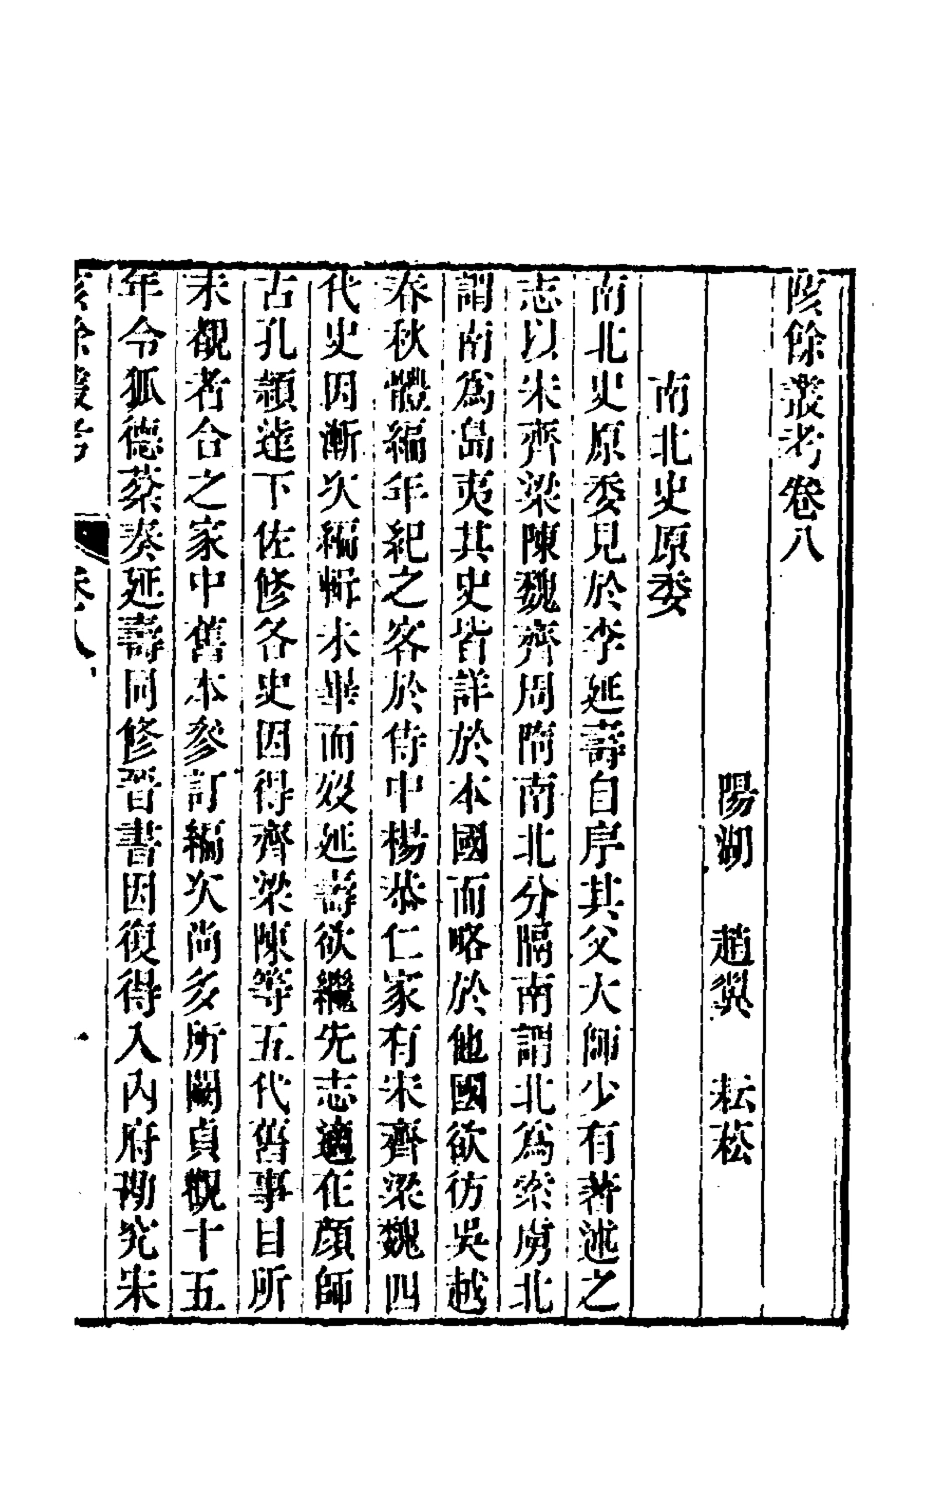 陔餘叢考卷八
陽湖 趙翼 耘菘
南北史原委
南北史原委見於李延壽自序其父大師少有著述之
志以宋齊梁陳魏齊周隋南北分隔南謂北爲索虜北
謂南爲島夷其史皆詳於本國而略於他國欲彷吳越
春秋體編年紀之客於侍中楊恭仁家有宋齊梁魏四
代史因漸次編輯未畢而歿延壽欲繼先志適在顏師
古孔頴逹下佐修各史因得齊梁陳等五代舊事目所
未覩者合之家中舊本參訂編次尚多所闕貞觀十五
年令狐德棻奏延壽同修晉書因復得入內府勘究宋
陔餘叢考 卷八 一